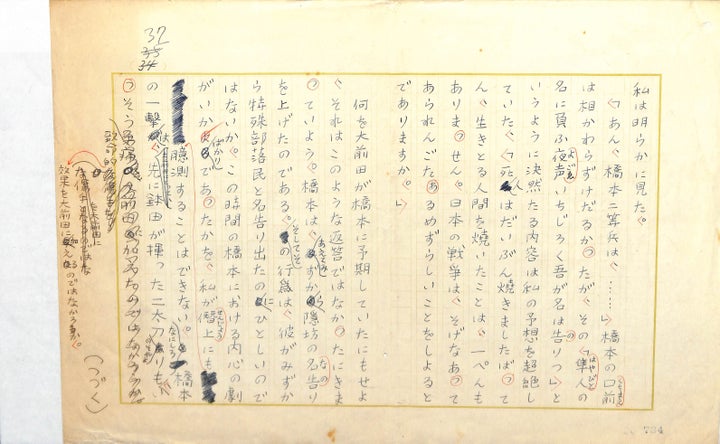 37
35
34
私は明らかに見た。
「あん、橋本二等兵は、……」橋本の口前
は相かわらずけだるかったが、その「隼人の
名に負ふ夜声いちじろく吾が名は告りつ」と
いうように決然たる内容は私の予想を超絶し
ていた、「死人はだいぶん焼きましたばって
ん、生きとる人間ち焼いたことは、一ぺんも
ありまっせん。日本の戦争は、そげなあって
あられんごたあるめずらしいことをしよると
でありますか。」
何を大前田が橋本に予期していたにもせよ
、それはこのような返答ではなかったにきま
っていよう。橋本は、隠坊の名告り
を上げたのである。そしてその行為は、彼がみずか
ら特殊部落民と名告り出たのにひとしいので
はないか。この時間の橋本における内心の劇
がいかばかりであったかを、私が僭上にも
臆測することはできない。なにしろ橋本
の一撃は、先に鉢田が揮った二太刀よりも
効果を大前田に
のではなかろうか。
（つづく）
784